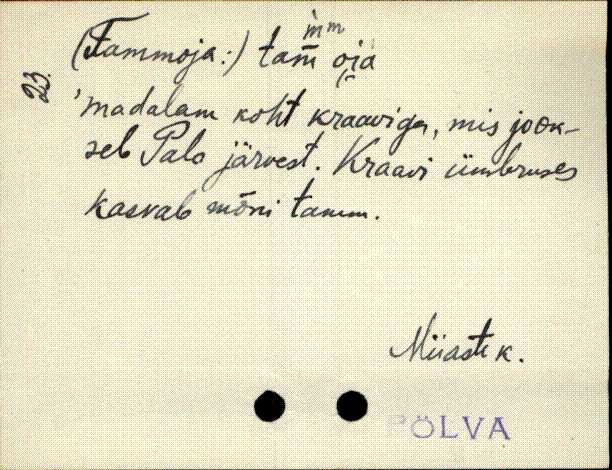 (Tammoja:) tam̄ oja
m̀m
23.
'madalam koht kraaviga, mis jook-
seb Palo järvest. Kraavi ümbruses
kasvab mõni tamm.
Miiaste k.
PÕLVA